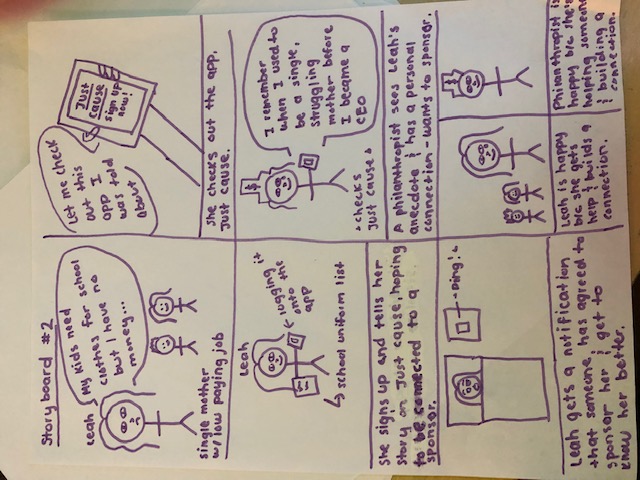 Storyboard #2
Leah
My kids need
clothes for school
but I have no
money...
single mother
w/ low paying job
Let me check
out this
app I
was told
about
Just
Cause
sign up
now!
She checks out the app,
Just Cause.
Leah
logging it
onto the
app
school uniform list
She signs up and tells her
story on Just Cause, hoping
to be connected to a
sponsor.
$
I remember
when I used to
be a single,
struggling
mother before
I became a
CEO
*checks
Just Cause*
A philanthropist sees Leah's
anecdote & has a personal
connection - wants to sponsor.
*Ding!*
Leah gets a notification
that someone has agreed to
sponsor her & get to
know her better.
Leah is happy
b/c she gets
help & builds a
connection.
$
Philanthropist is
happy b/c she's
helping someone
& building a
connection.